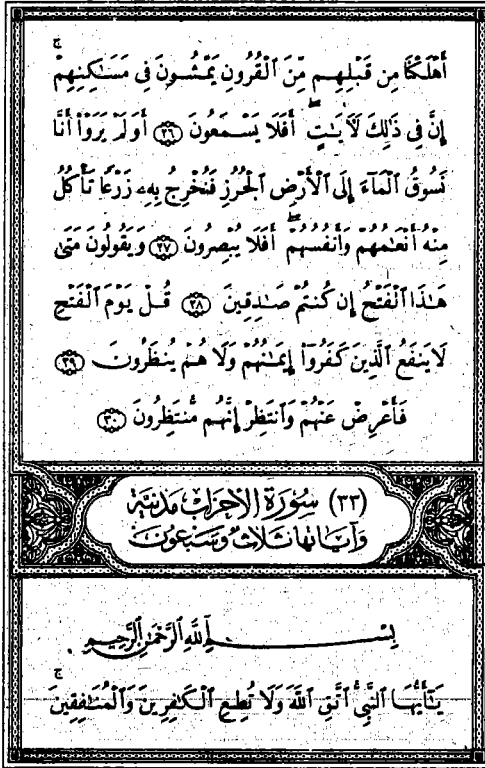 أَهْلَكْنَا مِن قَبْلِهِم مِّنَ ٱلْقُرُونِ يَمْشُونَ فِى مَسَـٰكِنِهِمْ ۚ
إِنَّ فِى ذَٰلِكَ لَـَٔايَـٰتٍ ۖ أَفَلَا يَسْمَعُونَ ٢٦ أَوَلَمْ يَرَوْا۟ أَنَّا
نَسُوقُ ٱلْمَآءَ إِلَى ٱلْأَرْضِ ٱلْجُرُزِ فَنُخْرِجُ بِهِۦ زَرْعًا تَأْكُلُ
مِنْهُ أَنْعَـٰمُهُمْ وَأَنفُسُهُمْ ۖ أَفَلَا يُبْصِرُونَ ٢٧ وَيَقُولُونَ مَتَىٰ
هَـٰذَا ٱلْفَتْحُ إِن كُنتُمْ صَـٰدِقِينَ ٢٨ قُلْ يَوْمَ ٱلْفَتْحِ
لَا يَنفَعُ ٱلَّذِينَ كَفَرُوٓا۟ إِيمَـٰنُهُمْ وَلَا هُمْ يُنظَرُونَ ٢٩
فَأَعْرِضْ عَنْهُمْ وَٱنتَظِرْ إِنَّهُم مُّنتَظِرُونَ ٣٠
(٣٣) سُورَةُ الأحزاب مَدنيّة
وَآيَاتُهَا ثَلَاثٌ وَسَبْعُونَ
بِسْمِ ٱللَّهِ ٱلرَّحْمَـٰنِ ٱلرَّحِيمِ
يَـٰٓأَيُّهَا ٱلنَّبِىُّ ٱتَّقِ ٱللَّهَ وَلَا تُطِعِ ٱلْكَـٰفِرِينَ وَٱلْمُنَـٰفِقِينَ ۚ